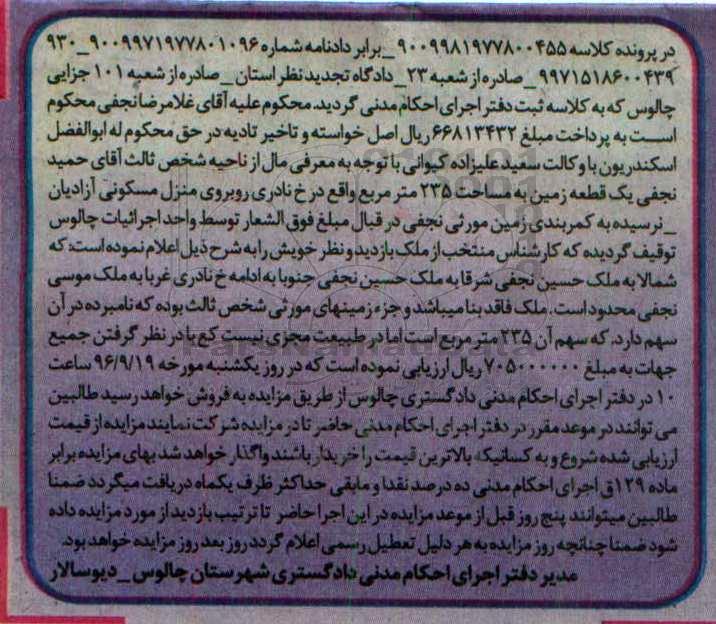 در پرونده کلاسه ۹۰۰۹۹۸۱۹۷۷۸۰۰۴۵۵ _ برابر دادنامه شماره ۹۰۰۹۹۷۱۹۷۷۸۰۱۰۹۶ _ ۹۳۰
۹۹۷۱۵۱۸۶۰۰۴۳۹ _ صادره از شعبه ۲۳ _ دادگاه تجدید نظر استان _ صادره از شعبه ۱۰۱ جزایی
چالوس که به کلاسه ثبت دفتر اجرای احکام مدنی گردید. محکوم علیه آقای غلامرضا نجفی محکوم
است به پرداخت مبلغ ۶۶۸۱۳۴۳۲ ریال اصل خواسته و تاخیر تادیه در حق محکوم له ابوالفضل
اسکندریون با وکالت سعید علیزاده کیوانی با توجه به معرفی مال از ناحیه شخص ثالث آقای حمید
نجفی یک قطعه زمین به مساحت ۲۳۵ متر مربع واقع در خ نادری روبروی منزل مسکونی آزادیان
_ نرسیده به کمربندی زمین مورثی نجفی در قبال مبلغ فوق الشعار توسط واحد اجرائیات چالوس
توقیف گردیده که کارشناس منتخب از ملک بازدید و نظر خویش را به شرح ذیل اعلام نموده است: که
شمالا به ملک حسین نجفی شرقا به ملک حسین نجفی جنوبا به ادامه خ نادری غربا به ملک موسی
نجفی محدود است. ملک فاقد بنا میباشد و جزء زمینهای مورثی شخص ثالث بوده که نامبرده در آن
سهم دارد. که سهم آن ۲۳۵ متر مربع است اما در طبیعت مجزی نیست کع با در نظر گرفتن جمیع
جهات به مبلغ ۷۰۵۰۰۰۰۰۰ ریال ارزیابی نموده است که در روز یکشنبه مورخه ۹۶/۹/۱۹ ساعت
۱۰ در دفتر اجرای احکام مدنی دادگستری چالوس از طریق مزایده به فروش خواهد رسید طالبین
می توانند در موعد مقرر در دفتر اجرای احکام مدنی حاضر تا در مزایده شرکت نمایند مزایده از قیمت
ارزیابی شده شروع و به کسانیکه بالاترین قیمت را خریدار باشند واگذار خواهد شد بهای مزایده برابر
ماده ۱۲۹ق اجرای احکام مدنی ده درصد نقدا و مابقی حداکثر ظرف یکماه دریافت میگردد ضمنا
طالبین میتوانند پنج روز قبل از موعد مزایده در این اجرا حاضر تا ترتیب بازدید از مورد مزایده داده
شود ضمنا چنانچه روز مزایده به هر دلیل تعطیل رسمی اعلام گردد روز بعد روز مزایده خواهد بود.
مدیر دفتر اجرای احکام مدنی دادگستری شهرستان چالوس _ دیوسالار